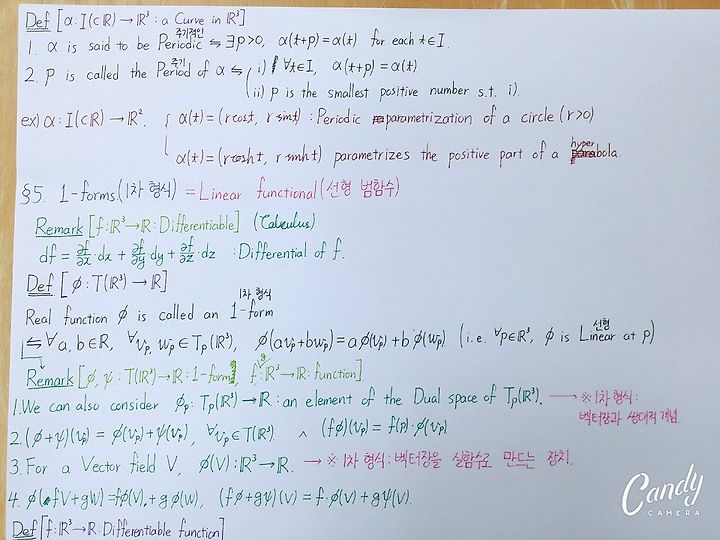 Def [α: I(⊂ℝ) → ℝ³ : a Curve in ℝ³]
주기적인
1. α is said to be Periodic ⇆ ∃p>0, α(t+p) = α(t) for each t∈I.
주기
2. p is called the Period of α ⇆ ( i) ∀t∈I, α(t+p) = α(t)
ii) p is the smallest positive number s.t. i).
ex) α: I(⊂ℝ) → ℝ². { α(t) = (r cos t, r sin t) : Periodic parametrization of a circle (r>0)
α(t) = (r cosh t, r sinh t) parametrizes the positive part of a hyperbola.
§5. 1-forms.(1차 형식) = Linear functional (선형 범함수)
Remark [f: ℝ³→ℝ : Differentiable] (Calculus)
df = ∂f/∂x · dx + ∂f/∂y · dy + ∂f/∂z · dz : Differential of f.
Def [ϕ : T(ℝ³) → ℝ]
1차 형식
Real function ϕ is called an 1-form
선형
⇆ ∀a, b∈ℝ, ∀vₚ, wₚ ∈ Tₚ(ℝ³), ϕ(avₚ+bwₚ) = aϕ(vₚ) + bϕ(wₚ) (i.e. ∀p∈ℝ³, ϕ is Linear at p)
Remark [ϕ, ψ : T(ℝ³)→ℝ : 1-form, f, g : ℝ³→ℝ : function]
1. We can also consider ϕₚ : Tₚ(ℝ³) → ℝ : an element of the Dual space of Tₚ(ℝ³). → ※ 1차 형식 :
벡터장과 쌍대적 개념.
2. (ϕ+ψ)(vₚ) = ϕ(vₚ) + ψ(vₚ), ∀vₚ∈T(ℝ³) ∧ (fϕ)(vₚ) = f(p)·ϕ(vₚ)
3. For a Vector field V, ϕ(V) : ℝ³→ℝ. → ※ 1차 형식 : 벡터장을 실함수로 만드는 장치.
4. ϕ(fV+gW) = fϕ(V) + gϕ(W), (fϕ+gψ)(V) = f·ϕ(V) + gψ(V).
Def [f: ℝ³→ℝ : Differentiable function]
Candy
CAMERA